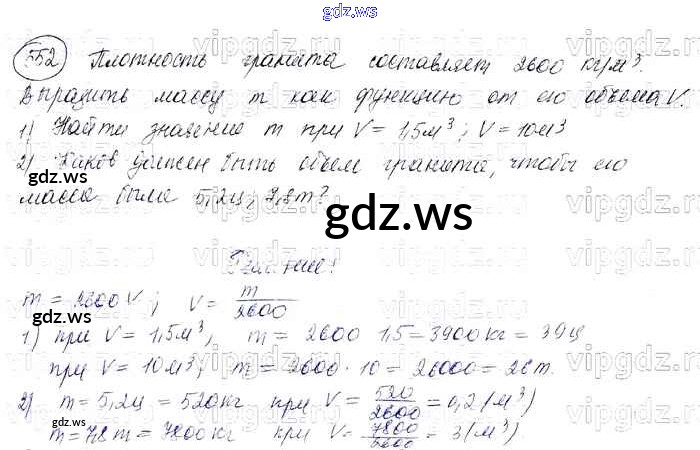 gdz.ws
552 Плотность гранита составляет 2600 кг/м³.
Выразить массу m как функцию от его объема V.
1) Найти значение m при V = 1,5 м³; V = 10 м³
2) Каков должен быть объем гранита, чтобы его
gdz.ws
масса была 5,2ц; 7,8т?
gdz.ws
Решение:
m = 2600V; V = m/2600
gdz.ws
1) при V = 1,5 м³, m = 2600 1,5 = 3900 кг = 39 ц
при V = 10 м³; m = 2600 · 10 = 26000 = 26 т.
2) m = 5,2ц = 520 кг при V = 520/2600 = 0,2 (м³)
gdz.ws
m = 7,8 т = 7800 кг при V = 7800/2600 = 3 (м³)